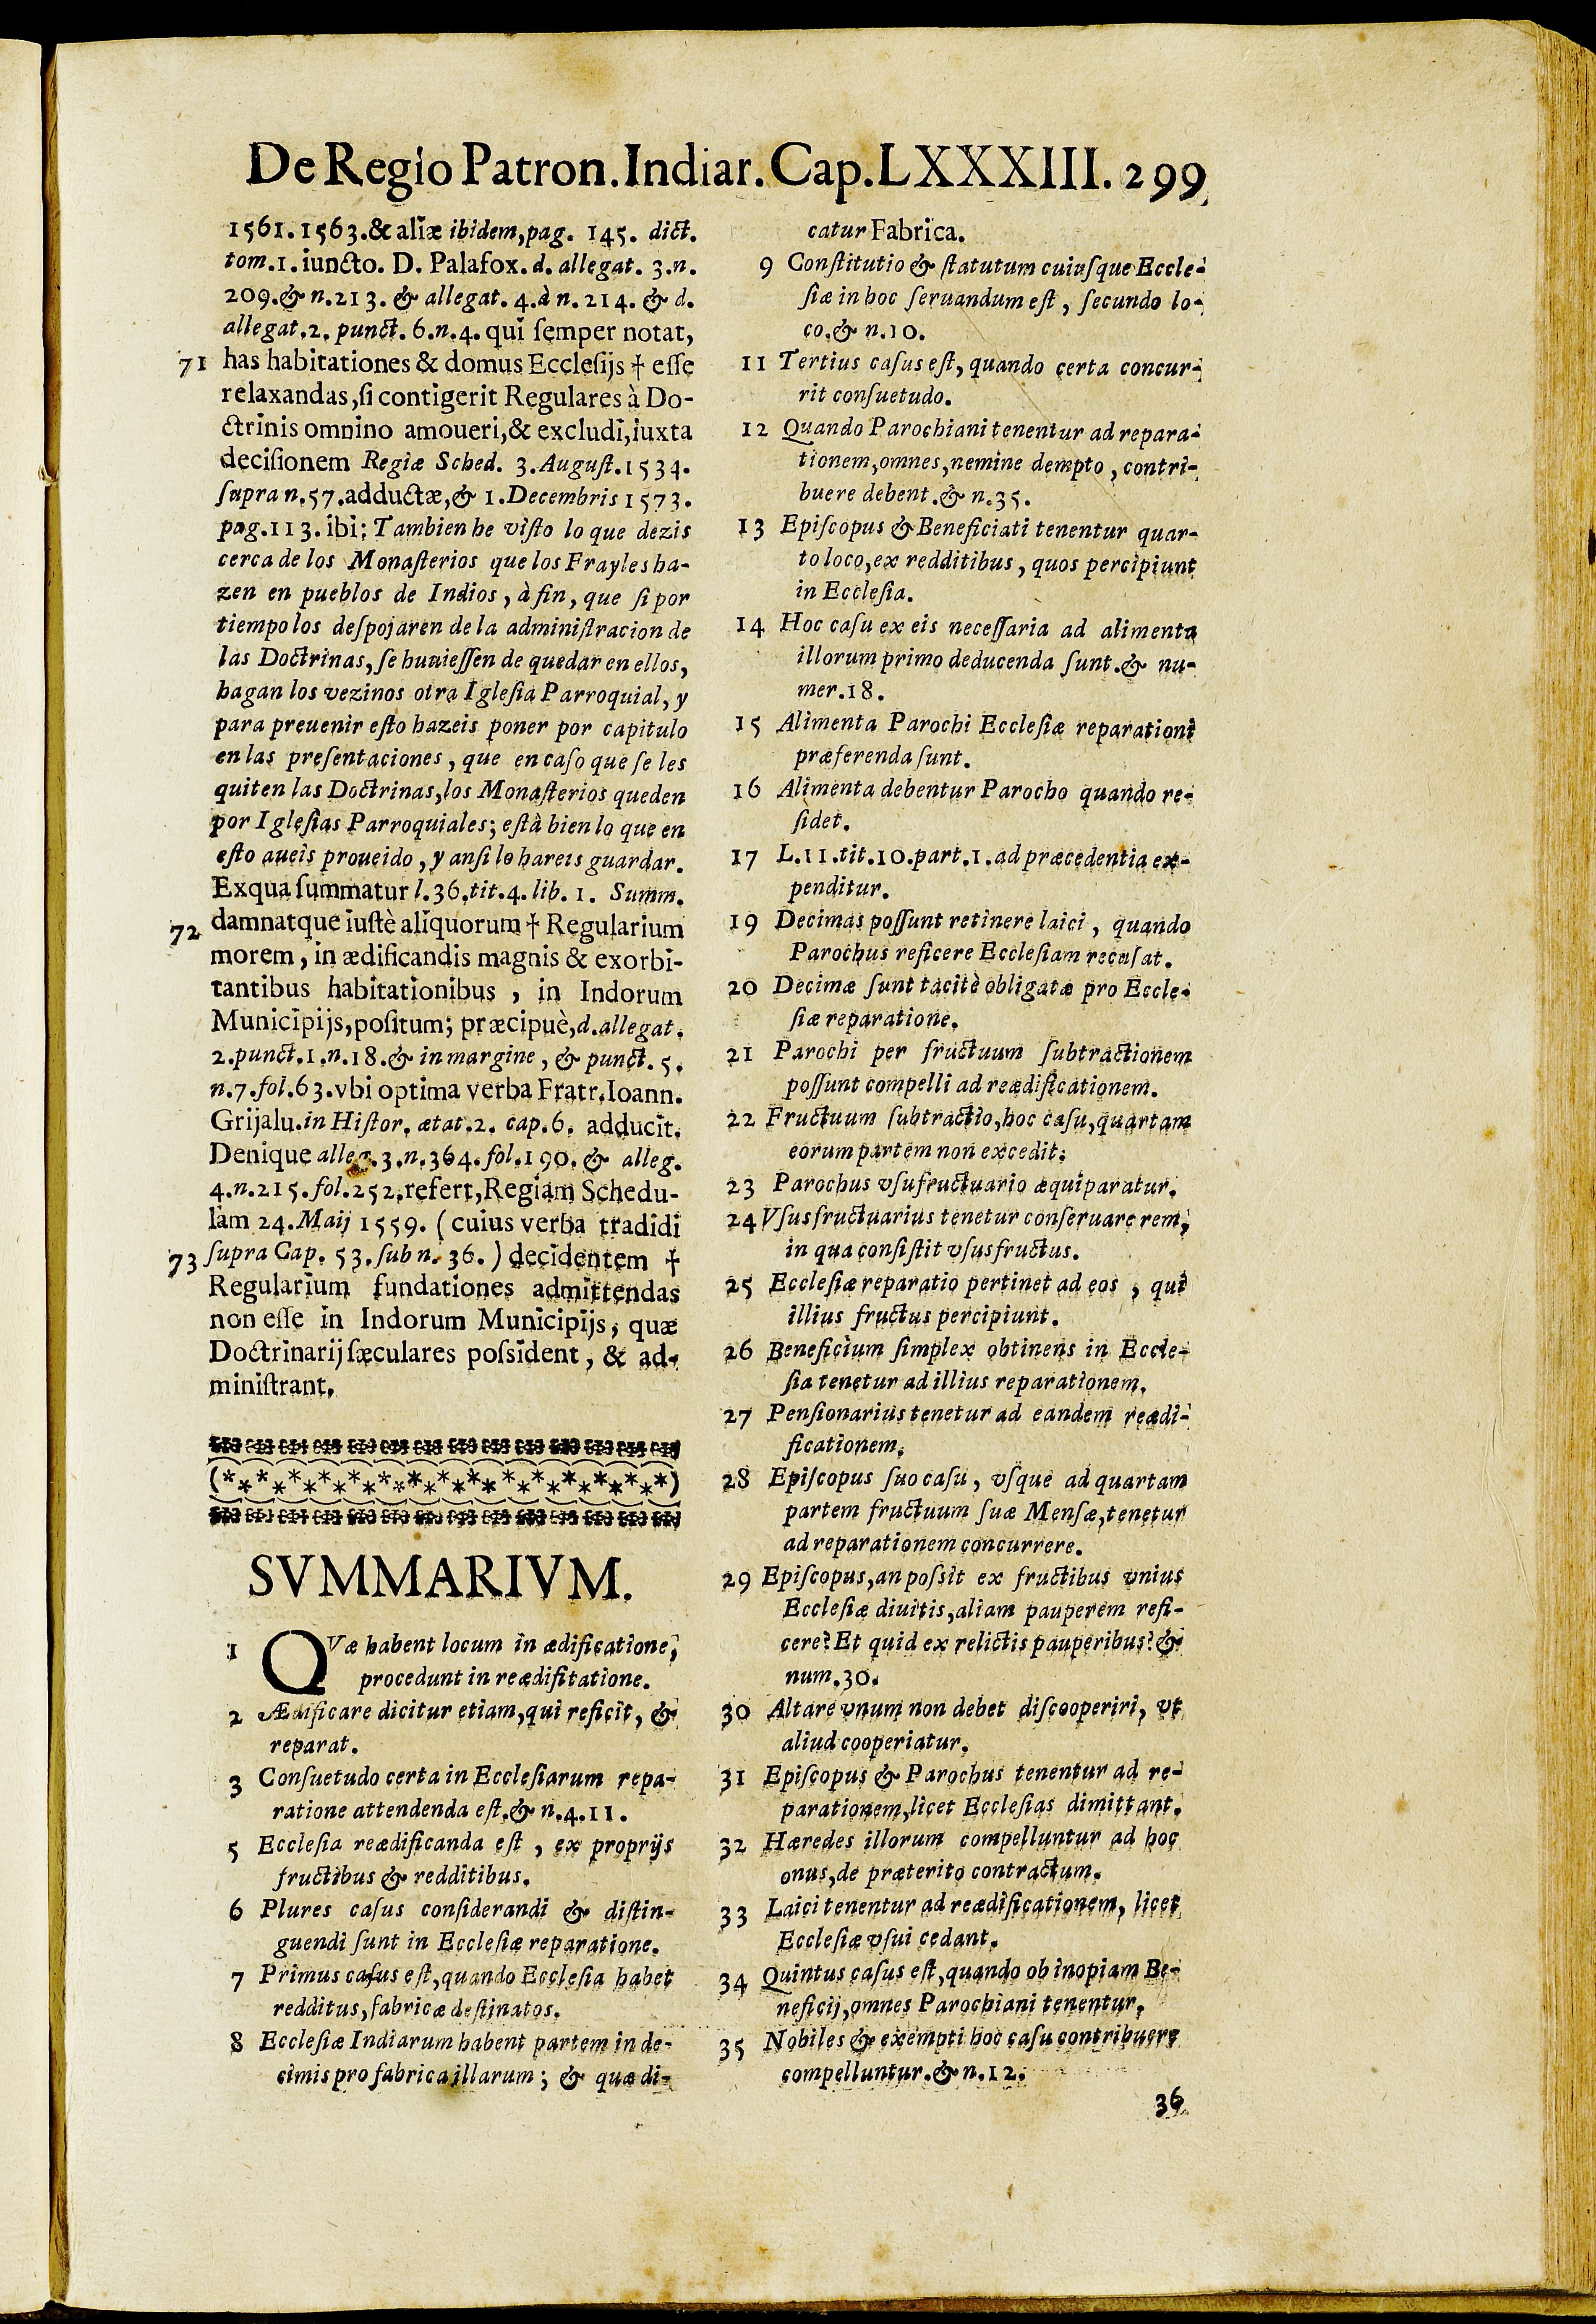 De Regio Patron. Indiar. Cap. LXXXIII. 299
1561. 1563. & aliæ ibidem, pag. 145. dict.
tom. 1. iuncto. D. Palafox. d. allegat. 3. n.
209. & n. 213. & allegat. 4. à n. 214. & d.
allegat. 2. punct. 6. n. 4. qui ſemper notat,
71 has habitationes & domus Eccleſijs † eſſe
relaxandas, ſi contigerit Regulares à Do-
ctrinis omnino amoueri, & excludi, iuxta
deciſionem Regiæ Sched. 3. Auguſt. 1534.
ſupra n. 57. adductæ, & 1. Decembris 1573.
pag. 113. ibi: Tambien he viſto lo que dezis
cerca de los Monaſterios que los Frayles ha-
zen en pueblos de Indios, à fin, que ſi por
tiempo los deſpojaren de la adminiſtracion de
las Doctrinas, ſe huuieſſen de quedar en ellos,
hagan los vezinos otra Igleſia Parroquial, y
para preuenir eſto hazeis poner por capitulo
en las preſentaciones, que en caſo que ſe les
quiten las Doctrinas, los Monaſterios queden
por Igleſias Parroquiales; eſtà bien lo que en
eſto aueis proueido, y anſi lo hareis guardar.
Exqua ſummatur l. 36. tit. 4. lib. 1. Summ.
72 damnatque iuſtè aliquorum † Regularium
morem, in ædificandis magnis & exorbi-
tantibus habitationibus, in Indorum
Municipijs, poſitum; præcipuè, d. allegat.
2. punct. 1. n. 18. & in margine, & punct. 5.
n. 7. fol. 63. vbi optima verba Fratr. Ioann.
Grijalu. in Hiſtor. ætat. 2. cap. 6. adducit.
Denique alleg. 3. n. 364. fol. 190. & alleg.
4. n. 215. fol. 252. refert, Regiam Schedu-
lam 24. Maij 1559. (cuius verba tradidi
73 ſupra Cap. 53. ſub n. 36.) decidentem †
Regularium fundationes admittendas
non eſſe in Indorum Municipijs, quæ
Doctrinarij ſæculares poſsident, & ad-
miniſtrant.
SVMMARIVM.
1 QVæ habent locum in ædificatione,
procedunt in reædifitatione.
2 Ædificare dicitur etiam, qui reficit, &
reparat.
3 Conſuetudo certa in Eccleſiarum repa-
ratione attendenda eſt. & n. 4. 11.
5 Eccleſia reædificanda eſt, ex proprijs
fructibus & redditibus.
6 Plures caſus conſiderandi & diſtin-
guendi ſunt in Eccleſiæ reparatione.
7 Primus caſus eſt, quando Eccleſia habet
redditus, fabricæ deſtinatos.
8 Eccleſiæ Indiarum habent partem in de-
cimis pro fabrica illarum; & quæ di-
catur Fabrica.
9 Conſtitutio & ſtatutum cuiuſque Eccle-
ſiæ in hoc ſeruandum eſt, ſecundo lo-
co. & n. 10.
11 Tertius caſus eſt, quando certa concur-
rit conſuetudo.
12 Quando Parochiani tenentur ad repara-
tionem, omnes, nemine dempto, contri-
buere debent. & n. 35.
13 Epiſcopus & Beneficiati tenentur quar-
to loco, ex redditibus, quos percipiunt
in Eccleſia.
14 Hoc caſu ex eis neceſſaria ad alimenta
illorum primo deducenda ſunt. & nu-
mer. 18.
15 Alimenta Parochi Eccleſiæ reparationi
præferenda ſunt.
16 Alimenta debentur Parocho quando re-
ſidet.
17 L. 11. tit. 10. part. 1. ad præcedentia ex-
penditur.
19 Decimas poſſunt retinere laici, quando
Parochus reficere Eccleſiam recuſat.
20 Decimæ ſunt tacitè obligatæ pro Eccle-
ſiæ reparatione.
21 Parochi per fructuum ſubtractionem
poſſunt compelli ad reædificationem.
22 Fructuum ſubtractio, hoc caſu, quartam
eorum partem non excedit.
23 Parochus vſufructuario æquiparatur.
24 Vſusfructuarius tenetur conſeruare rem,
in qua conſiſtit vſusfructus.
25 Eccleſiæ reparatio pertinet ad eos, qui
illius fructus percipiunt.
26 Beneficium ſimplex obtinens in Eccle-
ſia tenetur ad illius reparationem.
27 Penſionarius tenetur ad eandem reædi-
ficationem.
28 Epiſcopus ſuo caſu, vſque ad quartam
partem fructuum ſuæ Menſæ, tenetur
ad reparationem concurrere.
29 Epiſcopus, an poſsit ex fructibus vnius
Eccleſiæ diuitis, aliam pauperem refi-
cere? Et quid ex relictis pauperibus? &
num. 30.
30 Altare vnum non debet diſcooperiri, vt
aliud cooperiatur.
31 Epiſcopus & Parochus tenentur ad re-
parationem, licet Eccleſias dimittant.
32 Hæredes illorum compelluntur ad hoc
onus, de præterito contractum.
33 Laici tenentur ad reædificationem, licet
Eccleſiæ vſui cedant.
34 Quintus caſus eſt, quando ob inopiam Be-
neficij, omnes Parochiani tenentur.
35 Nobiles & exempti hoc caſu contribuere
compelluntur. & n. 12.
36